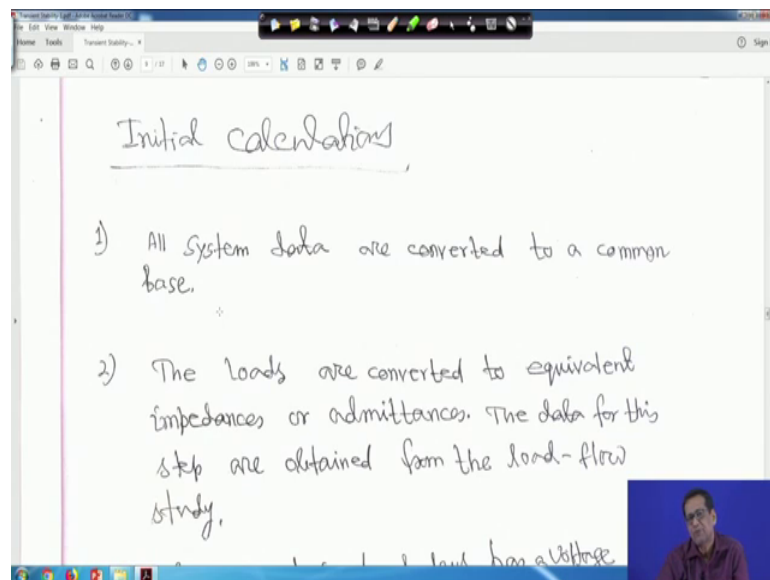 Transient Stability-1.pdf - Adobe Acrobat Reader DC
File Edit View Window Help
Home Tools Transient Stability-... × Sign
Initial calculations
1) All system data are converted to a common
base.
2) The loads are converted to equivalent
impedances or admittances. The data for this
step are obtained from the load-flow
study.
has a voltage